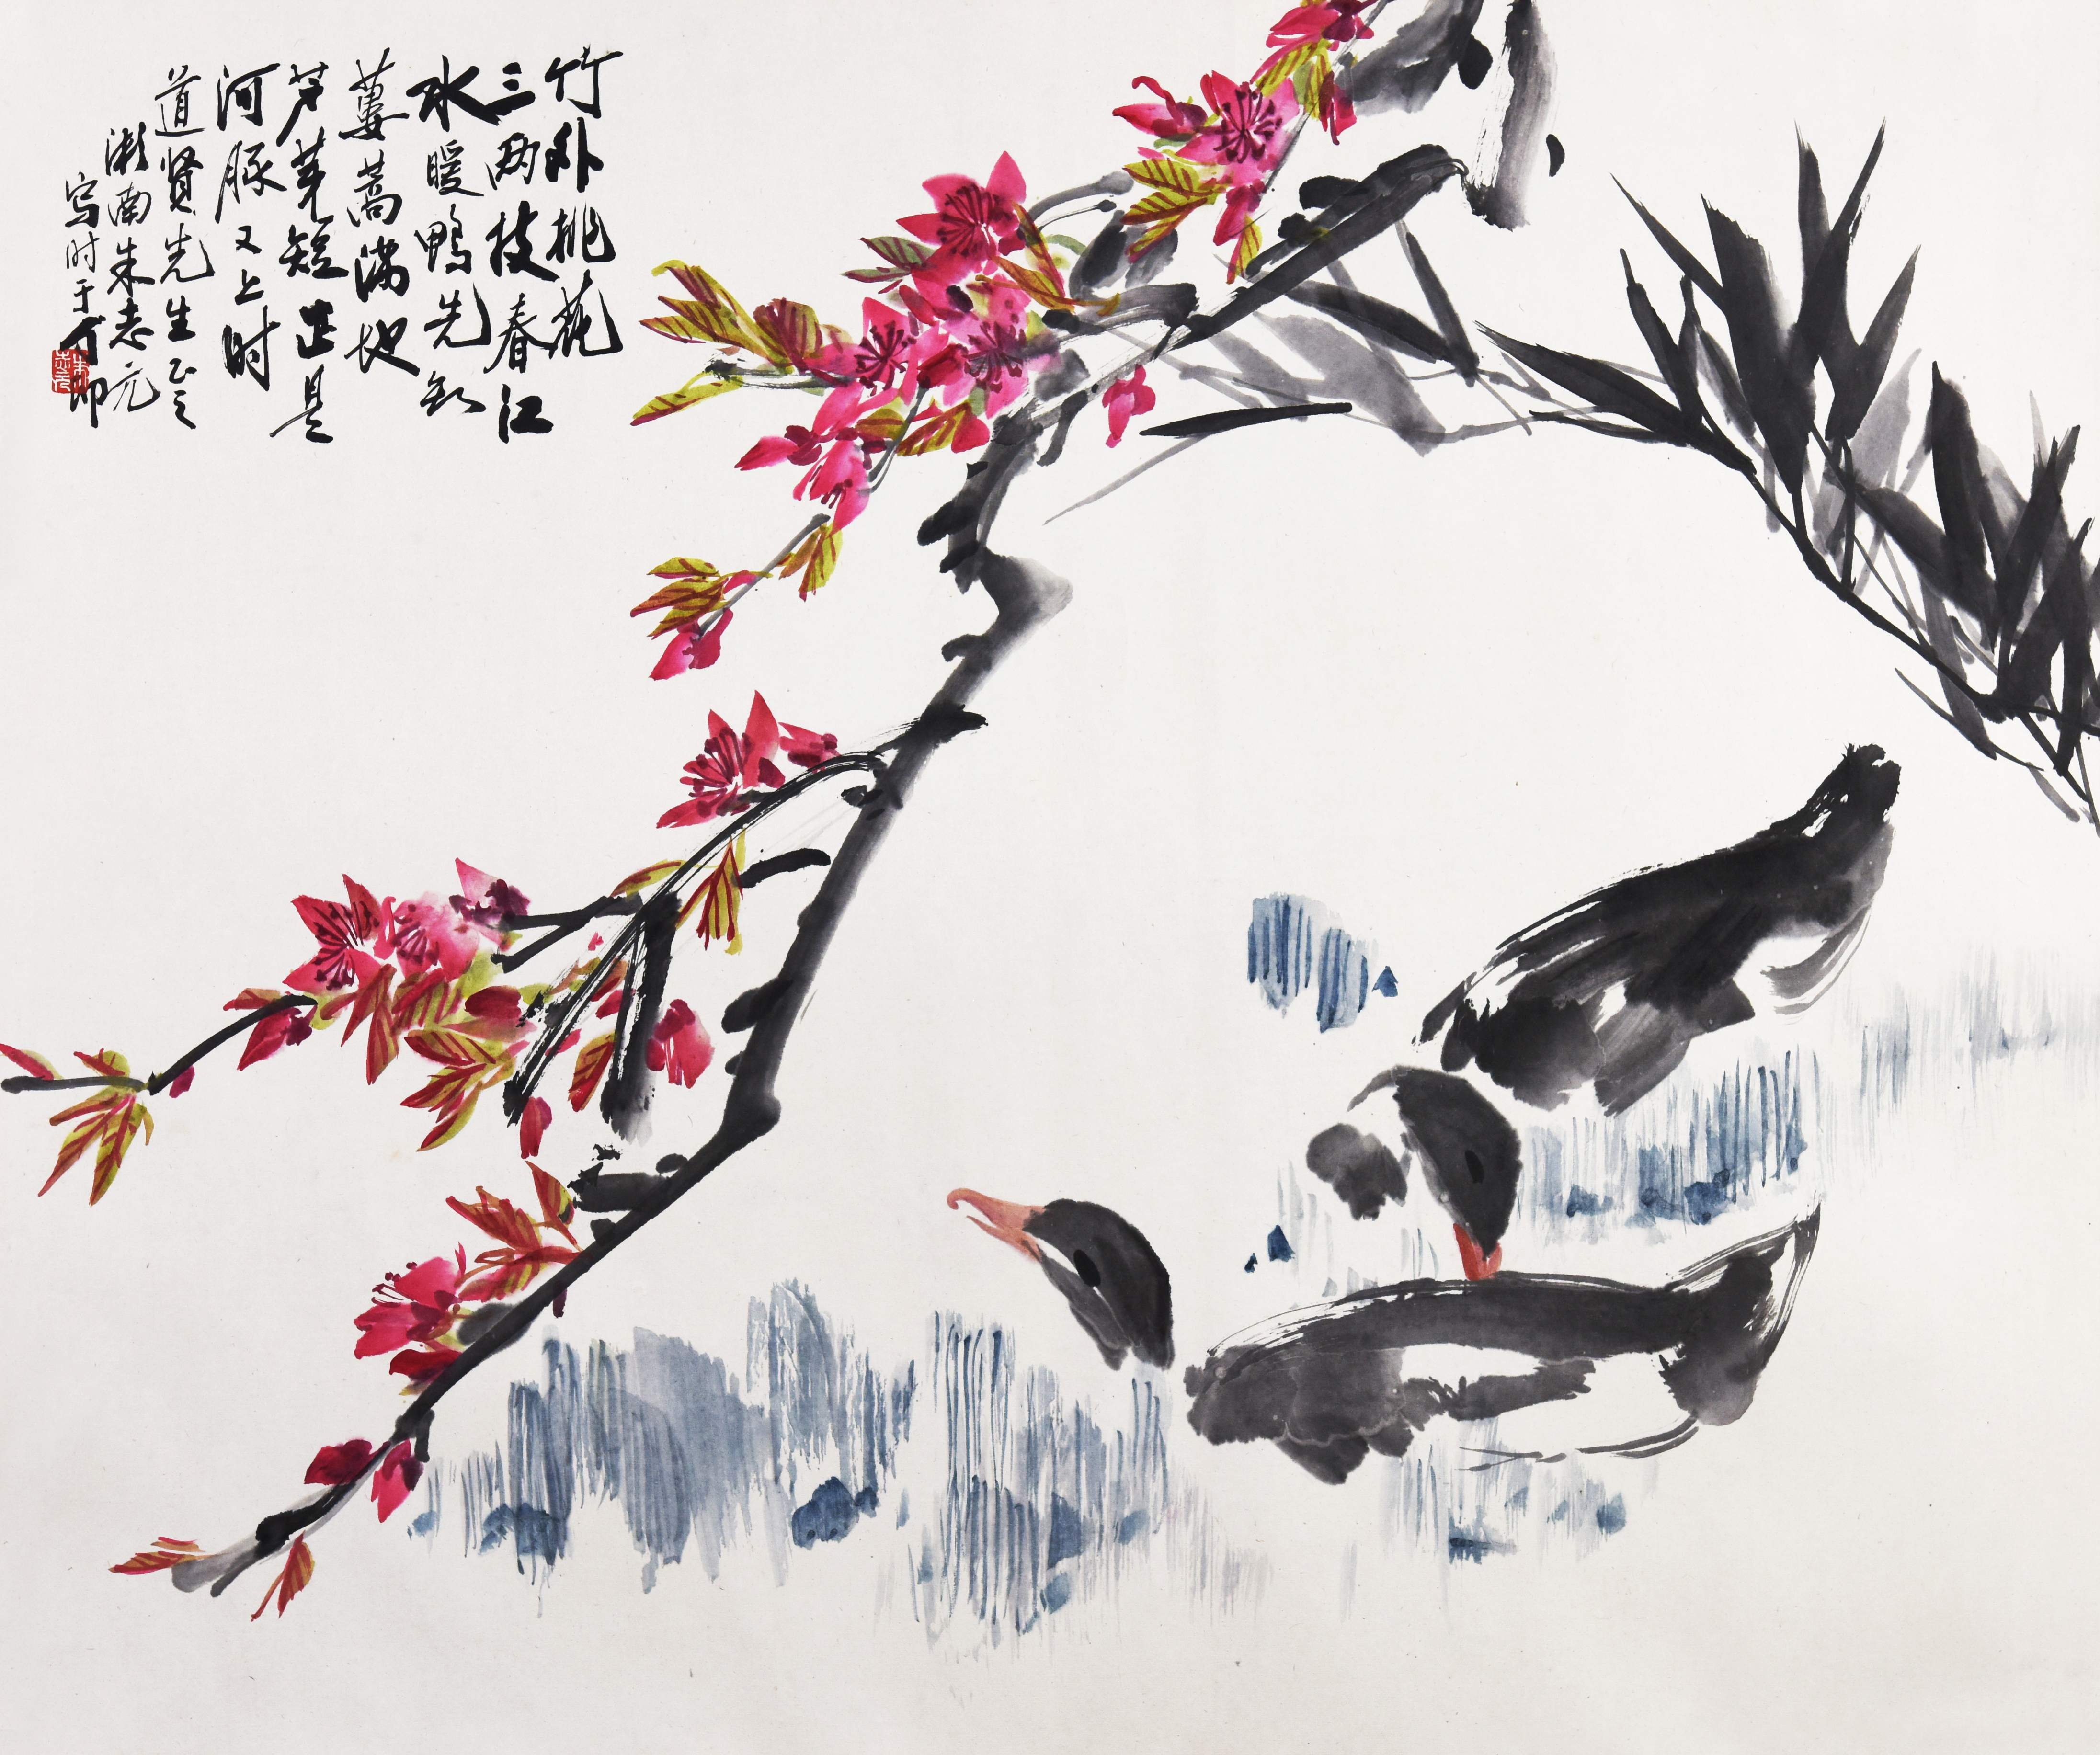 竹外桃花
三两枝春江
水暖鸭先知
蒌蒿满地
芦芽短正是
河豚又上时
道贤先生正之
南朱志元
写时于